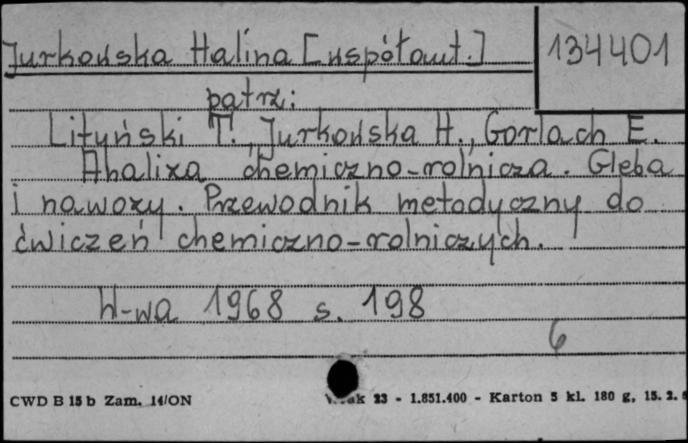 Jurkowska Halina [współaut.] 134401
patrz:
Lityński T., Jurkowska H., Gorlach E.
Analiza chemiczno-rolnicza. Gleba
i nawozy. Przewodnik metodyczny do
ćwiczeń chemiczno-rolniczych.
W-wa 1968 s. 198
6
CWD B 15 b Zam. 14/ON 23 - 1.851.400 - Karton 5 kl. 180 g, 15. 2.